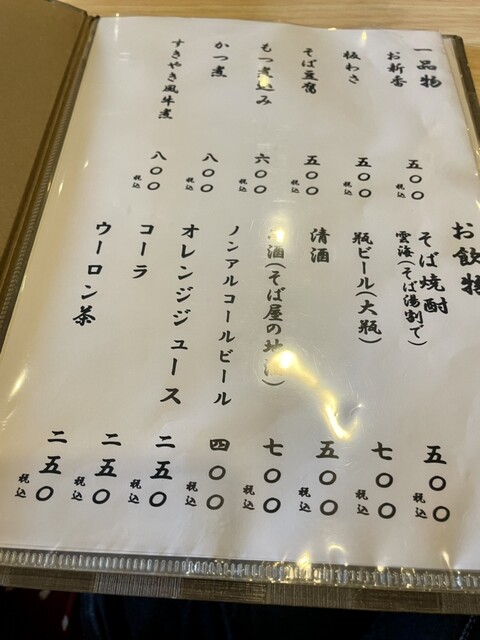 一品物
お新香 五〇〇 税込
板わさ 五〇〇 税込
そば豆腐 五〇〇 税込
もつ煮込み 六〇〇 税込
かつ煮 八〇〇 税込
すきやき風牛煮 八〇〇 税込
お飲物
そば焼酎
雲海(そば湯割で) 五〇〇 税込
瓶ビール(大瓶) 七〇〇 税込
清酒 五〇〇 税込
酒(そば屋の地酒) 七〇〇 税込
ノンアルコールビール 四〇〇 税込
オレンジジュース 二五〇 税込
コーラ 二五〇 税込
ウーロン茶 二五〇 税込